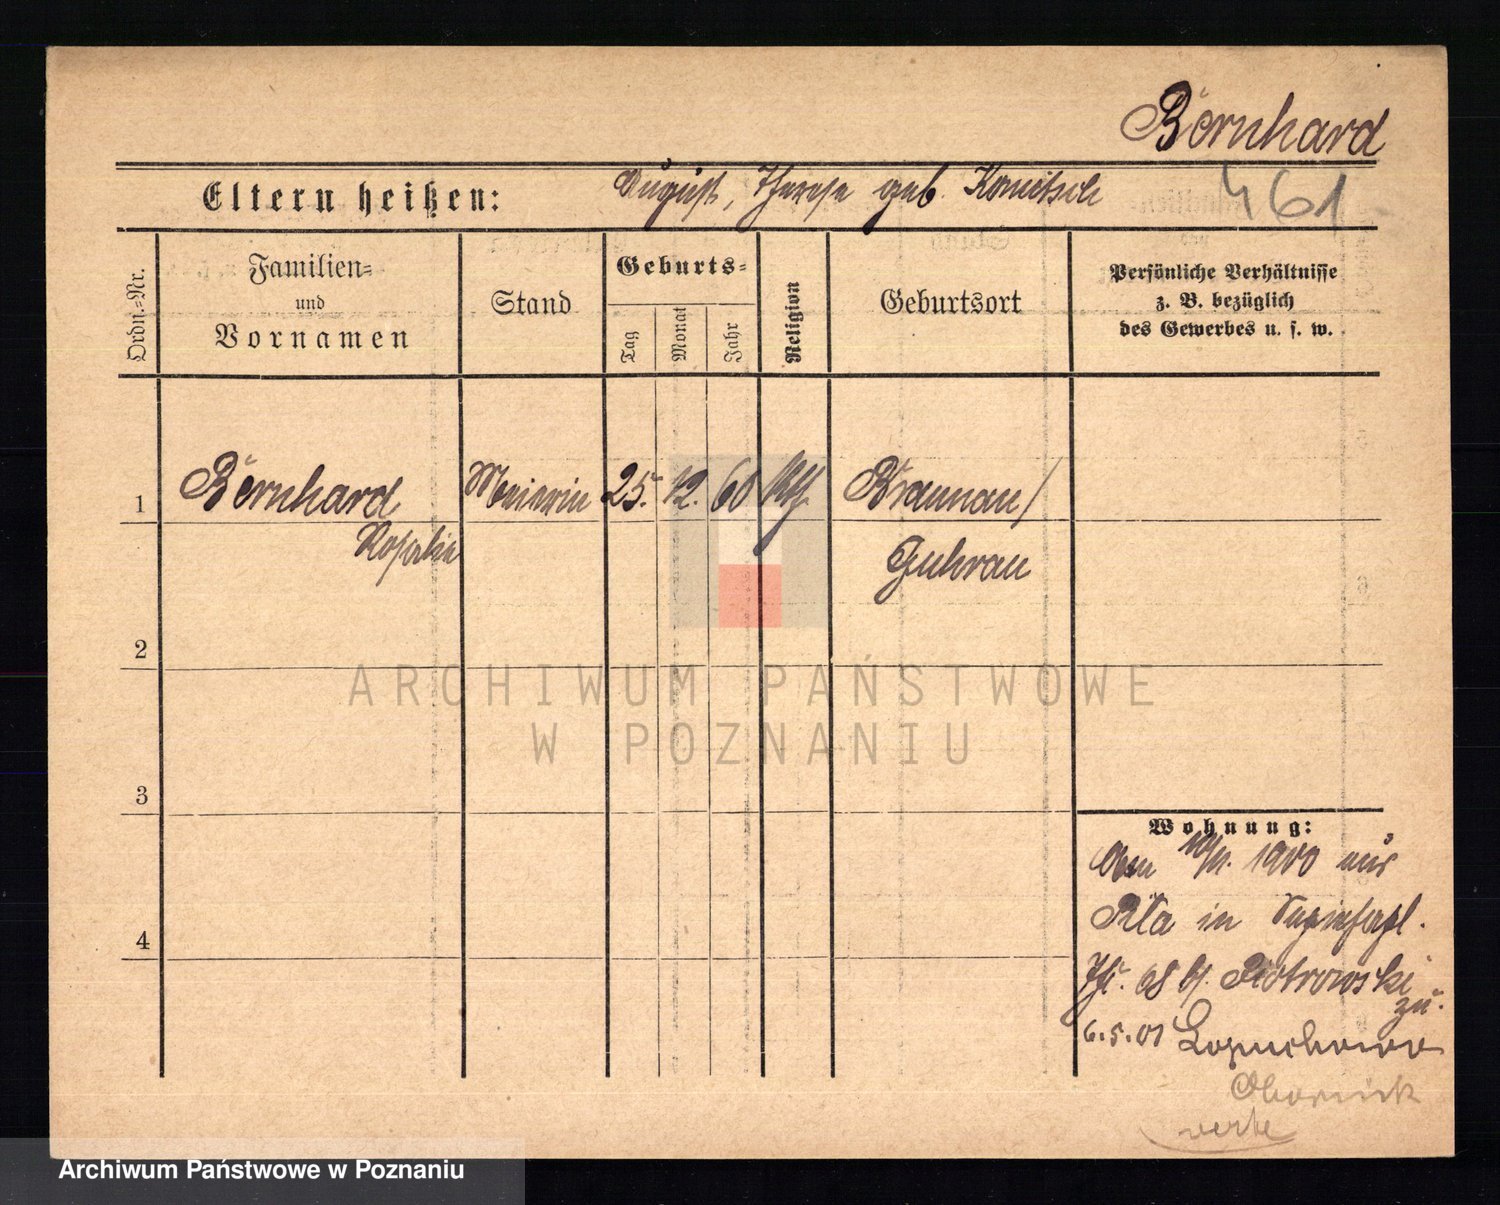 Bernhard
461
Eltern heißen: August, Therese geb. Konietzck
Ordn.-Nr.
Familien-
und
Vornamen
Stand
Geburts-
Tag
Monat
Jahr
Religion
Geburtsort
Persönliche Verhältnisse
z. B. bezüglich
des Gewerbes u. s. w.
1 Bernhard 25. 12. 60 kth. Braunau/
Rosalie Guhrau
2
3
4
ARCHIWUM PAŃSTWOWE
W POZNANIU
Wohnung:
1900 aus
Pila in
68 b/. Piotrowski
zu.
6.5.01 Lopuchowo
Obornik
verte
Archiwum Państwowe w Poznaniu